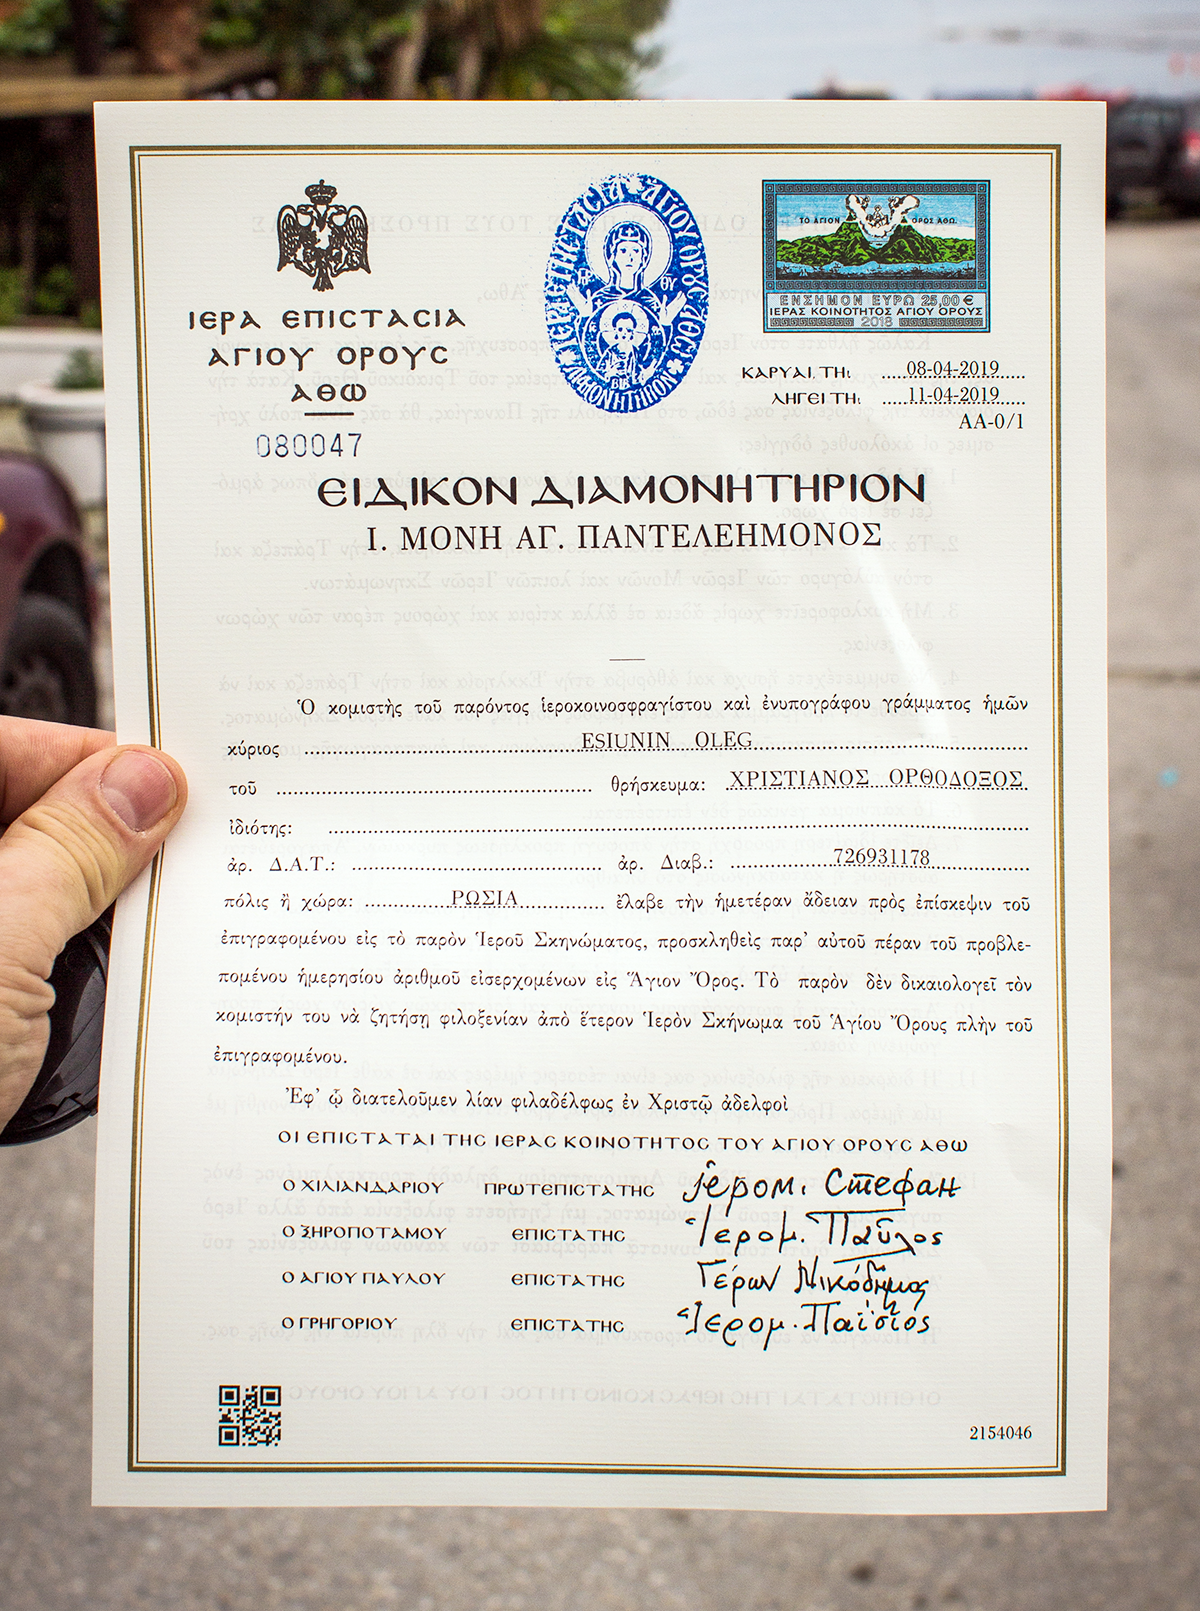 ΙΕΡΑ ΕΠΙCΤΑCΙΑ
ΑΓΙΟΥ ΟΡΟΥC
ΑΘΩ
080047
ΙΕΡΑ ΕΠΙCΤΑCΙΑ ΑΓΙΟΥ ΟΡΟΥC ΑΘΩ
ΔΙΑΜΟΝΗΤΗΡΙΟΝ
ΜΡ ΘΥ
ΤΟ ΑΓΙΟΝ ΟΡΟΣ ΑΘΩ
ΕΝΣΗΜΟΝ ΕΥΡΩ 25,00 €
ΙΕΡΑΣ ΚΟΙΝΟΤΗΤΟΣ ΑΓΙΟΥ ΟΡΟΥΣ
2018
ΚΑΡΥΑΙ, ΤΗ: 08-04-2019
ΛΗΓΕΙ ΤΗ: 11-04-2019
ΑΑ-0/1
ΕΙΔΙΚΟΝ ΔΙΑΜΟΝΗΤΗΡΙΟΝ
Ι. ΜΟΝΗ ΑΓ. ΠΑΝΤΕΛΕΗΜΟΝΟΣ
Ὁ κομιστὴς τοῦ παρόντος ἱεροκοινοσφραγίστου καὶ ἐνυπογράφου γράμματος ἡμῶν
κύριος ESIUNIN OLEG
τοῦ θρήσκευμα: ΧΡΙΣΤΙΑΝΟΣ ΟΡΘΟΔΟΞΟΣ
ἰδιότης:
ἀρ. Δ.Α.Τ.: ἀρ. Διαβ.: 726931178
πόλις ἢ χώρα: ΡΩΣΙΑ ἔλαβε τὴν ἡμετέραν ἄδειαν πρὸς ἐπίσκεψιν τοῦ
ἐπιγραφομένου εἰς τὸ παρὸν Ἱεροῦ Σκηνώματος, προσκληθεὶς παρ' αὐτοῦ πέραν τοῦ προβλε-
πομένου ἡμερησίου ἀριθμοῦ εἰσερχομένων εἰς Ἅγιον Ὄρος. Τὸ παρὸν δὲν δικαιολογεῖ τὸν
κομιστήν του νὰ ζητήσῃ φιλοξενίαν ἀπὸ ἕτερον Ἱερὸν Σκήνωμα τοῦ Ἁγίου Ὄρους πλὴν τοῦ
ἐπιγραφομένου.
Ἐφ' ᾧ διατελοῦμεν λίαν φιλαδέλφως ἐν Χριστῷ ἀδελφοὶ
ΟΙ ΕΠΙCΤΑΤΑΙ ΤΗC ΙΕΡΑC ΚΟΙΝΟΤΗΤΟC ΤΟΥ ΑΓΙΟΥ ΟΡΟΥC ΑΘΩ
Ο ΧΙΛΙΑΝΔΑΡΙΟΥ ΠΡΩΤΕΠΙCΤΑΤΗC јером. Стефан
Ο ΞΗΡΟΠΟΤΑΜΟΥ ΕΠΙCΤΑΤΗC Ἱερομ. Παῦλος
Ο ΑΓΙΟΥ ΠΑΥΛΟΥ ΕΠΙCΤΑΤΗC Γέρων Νικόδημος
Ο ΓΡΗΓΟΡΙΟΥ ΕΠΙCΤΑΤΗC Ἱερομ. Παΐσιος
2154046